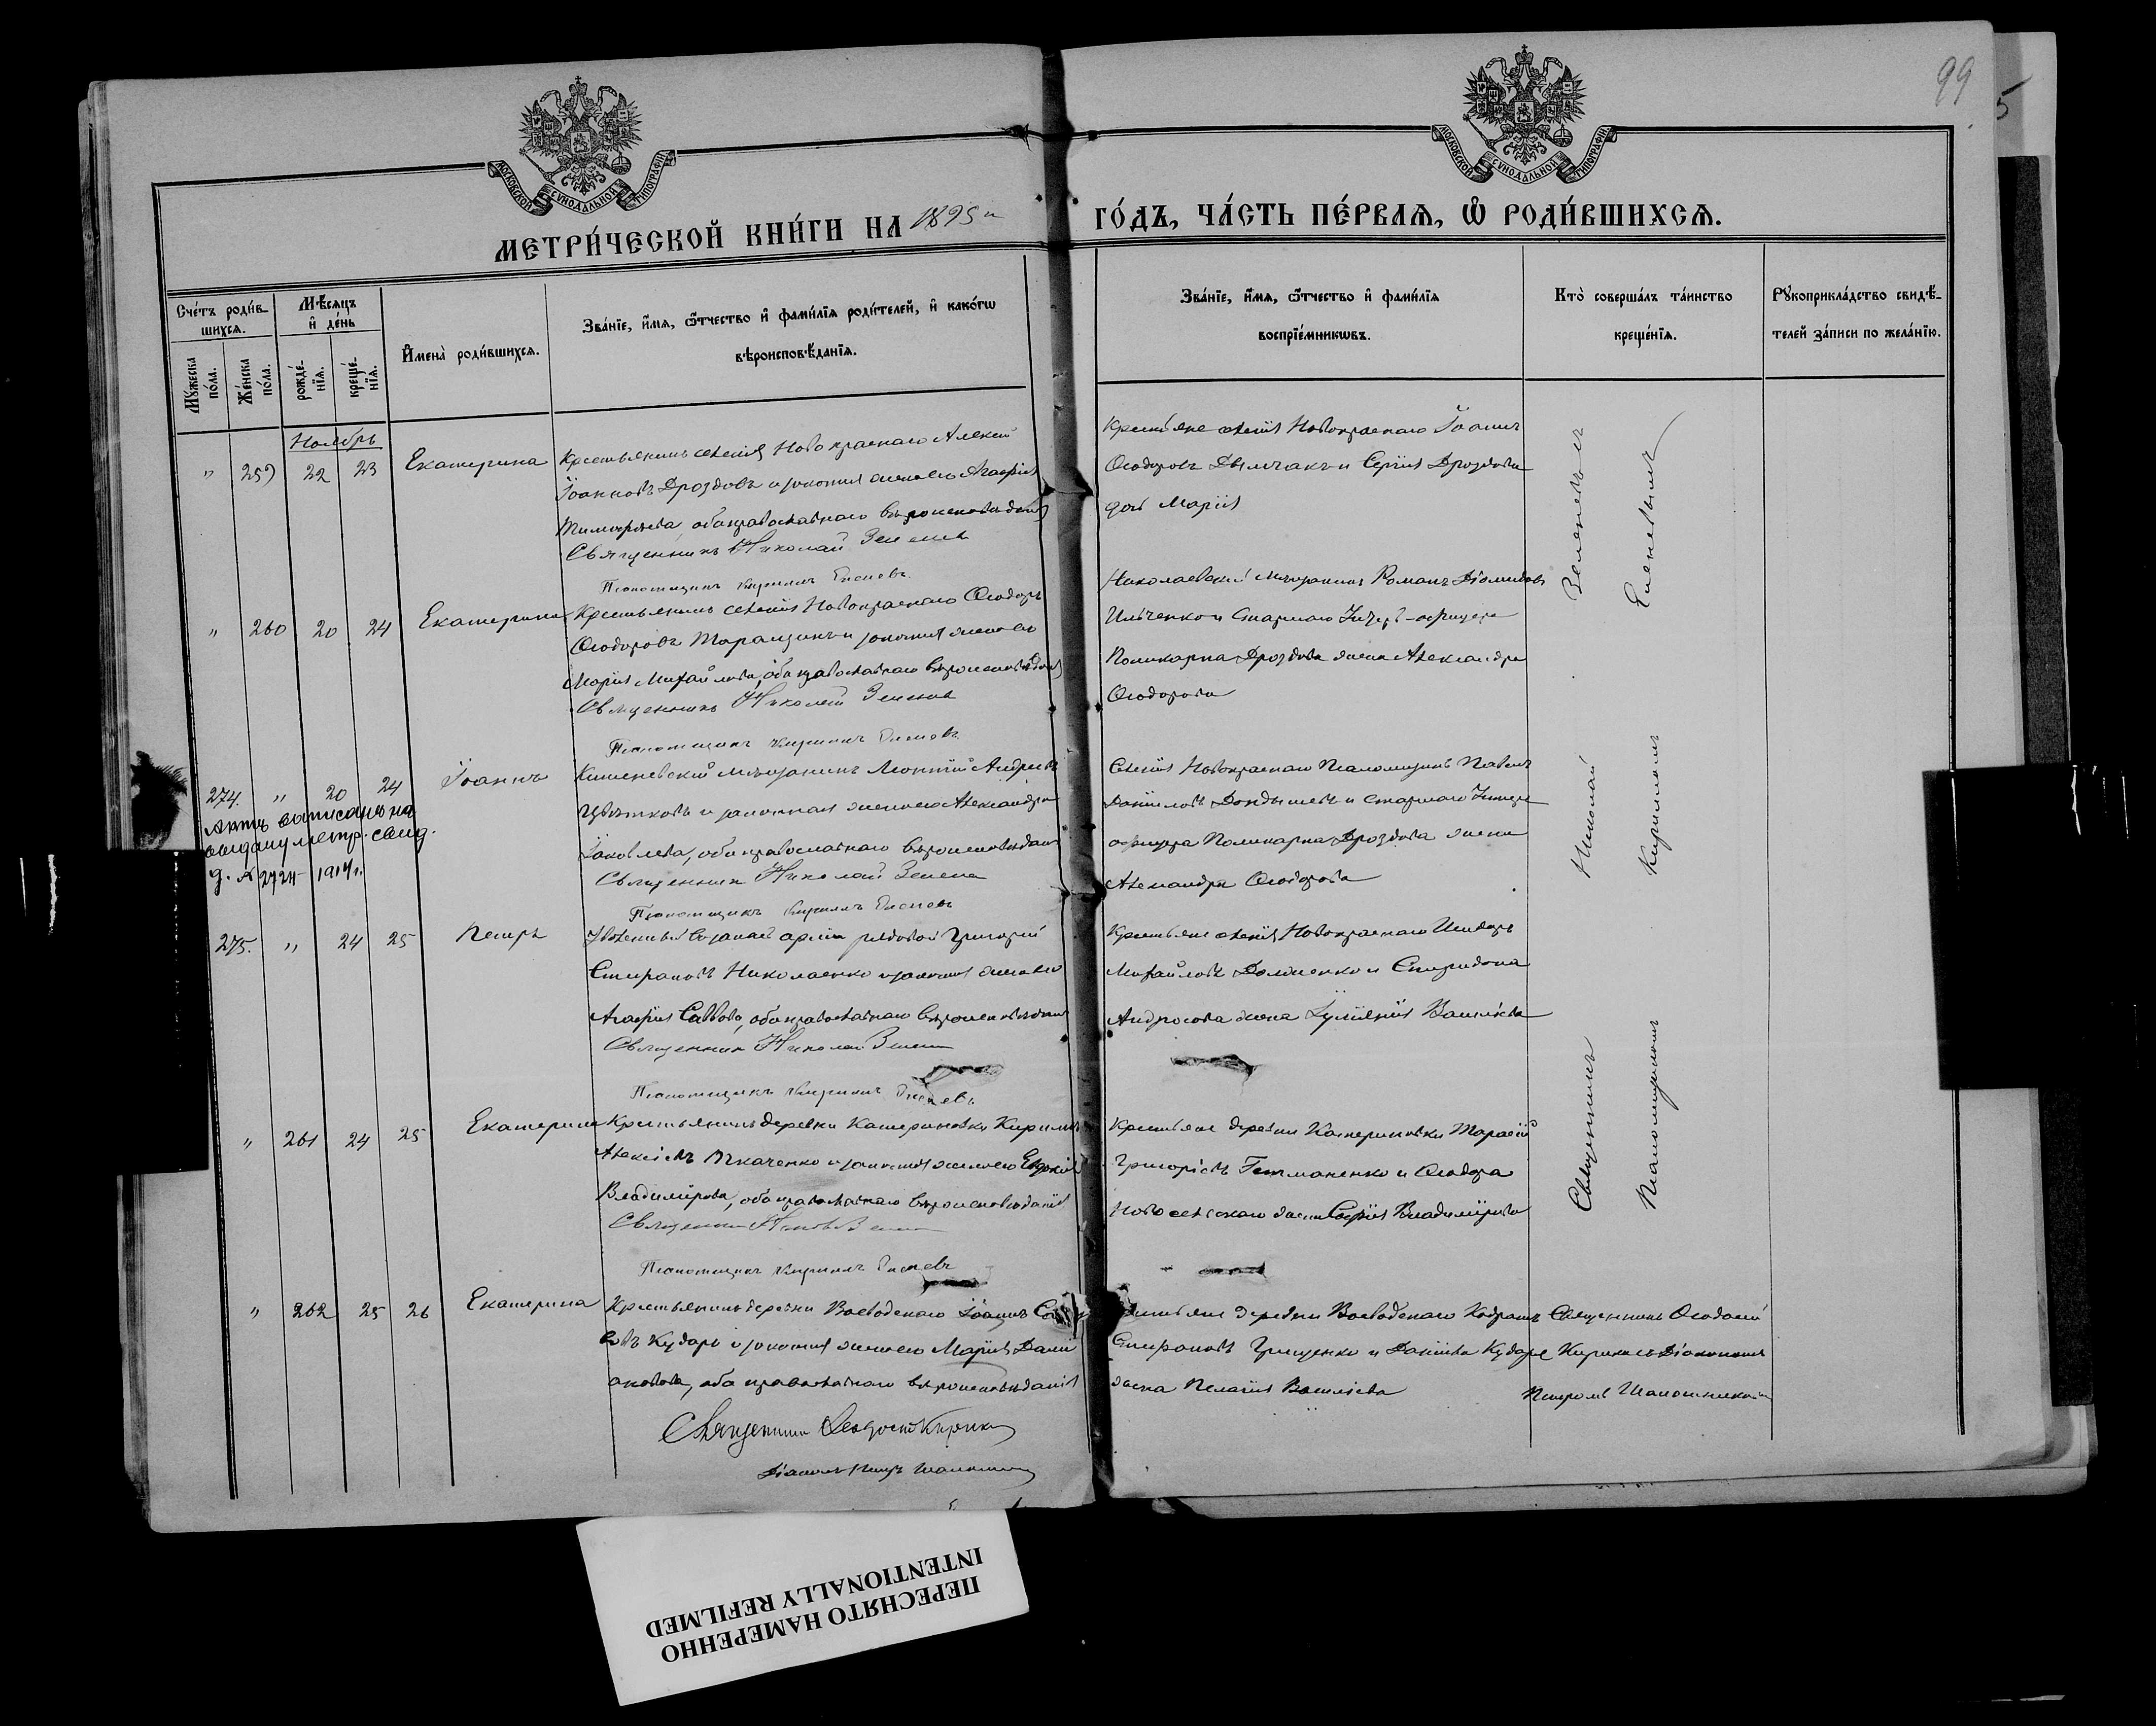 99
5
МОСКОВСКОЙ СѴНОДАЛЬНОЙ ТИПОГРАФІИ
МОСКОВСКОЙ СѴНОДАЛЬНОЙ ТИПОГРАФІИ
МЕТРИ́ЧЕСКОЙ КНИ́ГИ НА 1895й
ГО́ДЪ, ЧА́СТЬ ПЕ́РВАѦ, Ѡ РОДИ́ВШИХСѦ.
Сче́тъ роди́в-
шихсѧ.
Мꙋ́жеска
по́ла.
Же́нска
по́ла.
Мѣ́сѧцъ
и҆ де́нь
рожде́-
нїѧ.
креще́-
нїѧ.
И҆мена̀ роди́вшихсѧ.
Зва́нїе, и҆́мѧ, ѻ҆́тчество и҆ фами́лїѧ роди́телей, и҆ како́гѡ
вѣроисповѣ́данїѧ.
Зва́нїе, и҆́мѧ, ѻ҆́тчество и҆ фами́лїѧ
воспрїе́мникѡвъ.
Кто̀ соверша́лъ та́инство
креще́нїѧ.
Рꙋкоприкла́дство свидѣ́-
телей за́писи по жела́нїю.
Ноябрь
" 259 22 23 Екатерина
Крестьянинъ селенія Новокраснаго Алексій
Іоанновъ Дроздовъ и законная жена его Агафія
Тимофѣева, оба православнаго вѣроисповѣданія
Священникъ Николай Зеленевъ
Псаломщикъ Кириллъ
Крестьяне селенія Новокраснаго Іоаннъ
Ѳеодоровъ и Сергія Дроздова
дочь Марія
" 260 20 24 Екатерина
Крестьянинъ селенія Новокраснаго Ѳеодоръ
Ѳеодоровъ Таращикъ и законная жена его
Марія Михайлова, оба православнаго вѣроисповѣданія
Священникъ Николай
Псаломщикъ Кириллъ
Николаевскій мѣщанинъ Романъ Діомидовъ
Ильченко и старшаго Унтеръ-офицера
Поликарпа Дроздова жена Александра
Ѳеодорова
274. " 20 24 Іоаннъ
Актъ выписанъ на
выдачу метр. свид.
д. № 2724 1914 г.
Кишеневскій мѣщанинъ Леонтій Андреевъ
Цвѣтковъ и законная жена его Александра
Іаковлева, оба православнаго вѣроисповѣданія
Священникъ Николай
Псаломщикъ Кириллъ
Селенія Новокраснаго Псаломщикъ Павелъ
Даніиловъ и старшаго Унтеръ
офицера Поликарпа Дроздова жена
Александра Ѳеодорова
275. " 24 25 Петръ
Уволенный въ запасъ арміи рядовой Григорій
Стефановъ Николаенко и законная жена его
Агафія Саввова, оба православнаго вѣроисповѣданія
Священникъ Николай
Псаломщикъ Кириллъ
Крестьяне селенія Новокраснаго Исидоръ
Михайловъ и Спиридона
Андросова жена Іуліанія Васильева
" 261 24 25 Екатерина
Крестьянинъ деревни Катериновки Кириллъ
Алексіевъ Ткаченко и законная жена его Евдокія
Владимірова, оба православнаго вѣроисповѣданія
Священникъ
Псаломщикъ Кириллъ
Крестьяне деревни Катериновки Тарасій
Григоріевъ Гетманенко и Ѳеодора
Новосельскаго жена Софія Владимірова
" 262 25 26 Екатерина
Крестьянинъ деревни Воеводскаго Іоаннъ
Кударь и законная жена его Марія Даміановова, оба православнаго вѣроисповѣданія
Священникъ
Діаконъ Петръ
Крестьяне деревни Воеводскаго Кодратъ
Стефановъ Грищенко и Даніила Кударе
жена Пелагія Васильева
Священникъ Ѳеодосій
Діакономъ
Петромъ
Священникъ Николай
Псаломщикомъ Кирилломъ
ПЕРЕСНЯТО НАМЕРЕННО
INTENTIONALLY REFILMED